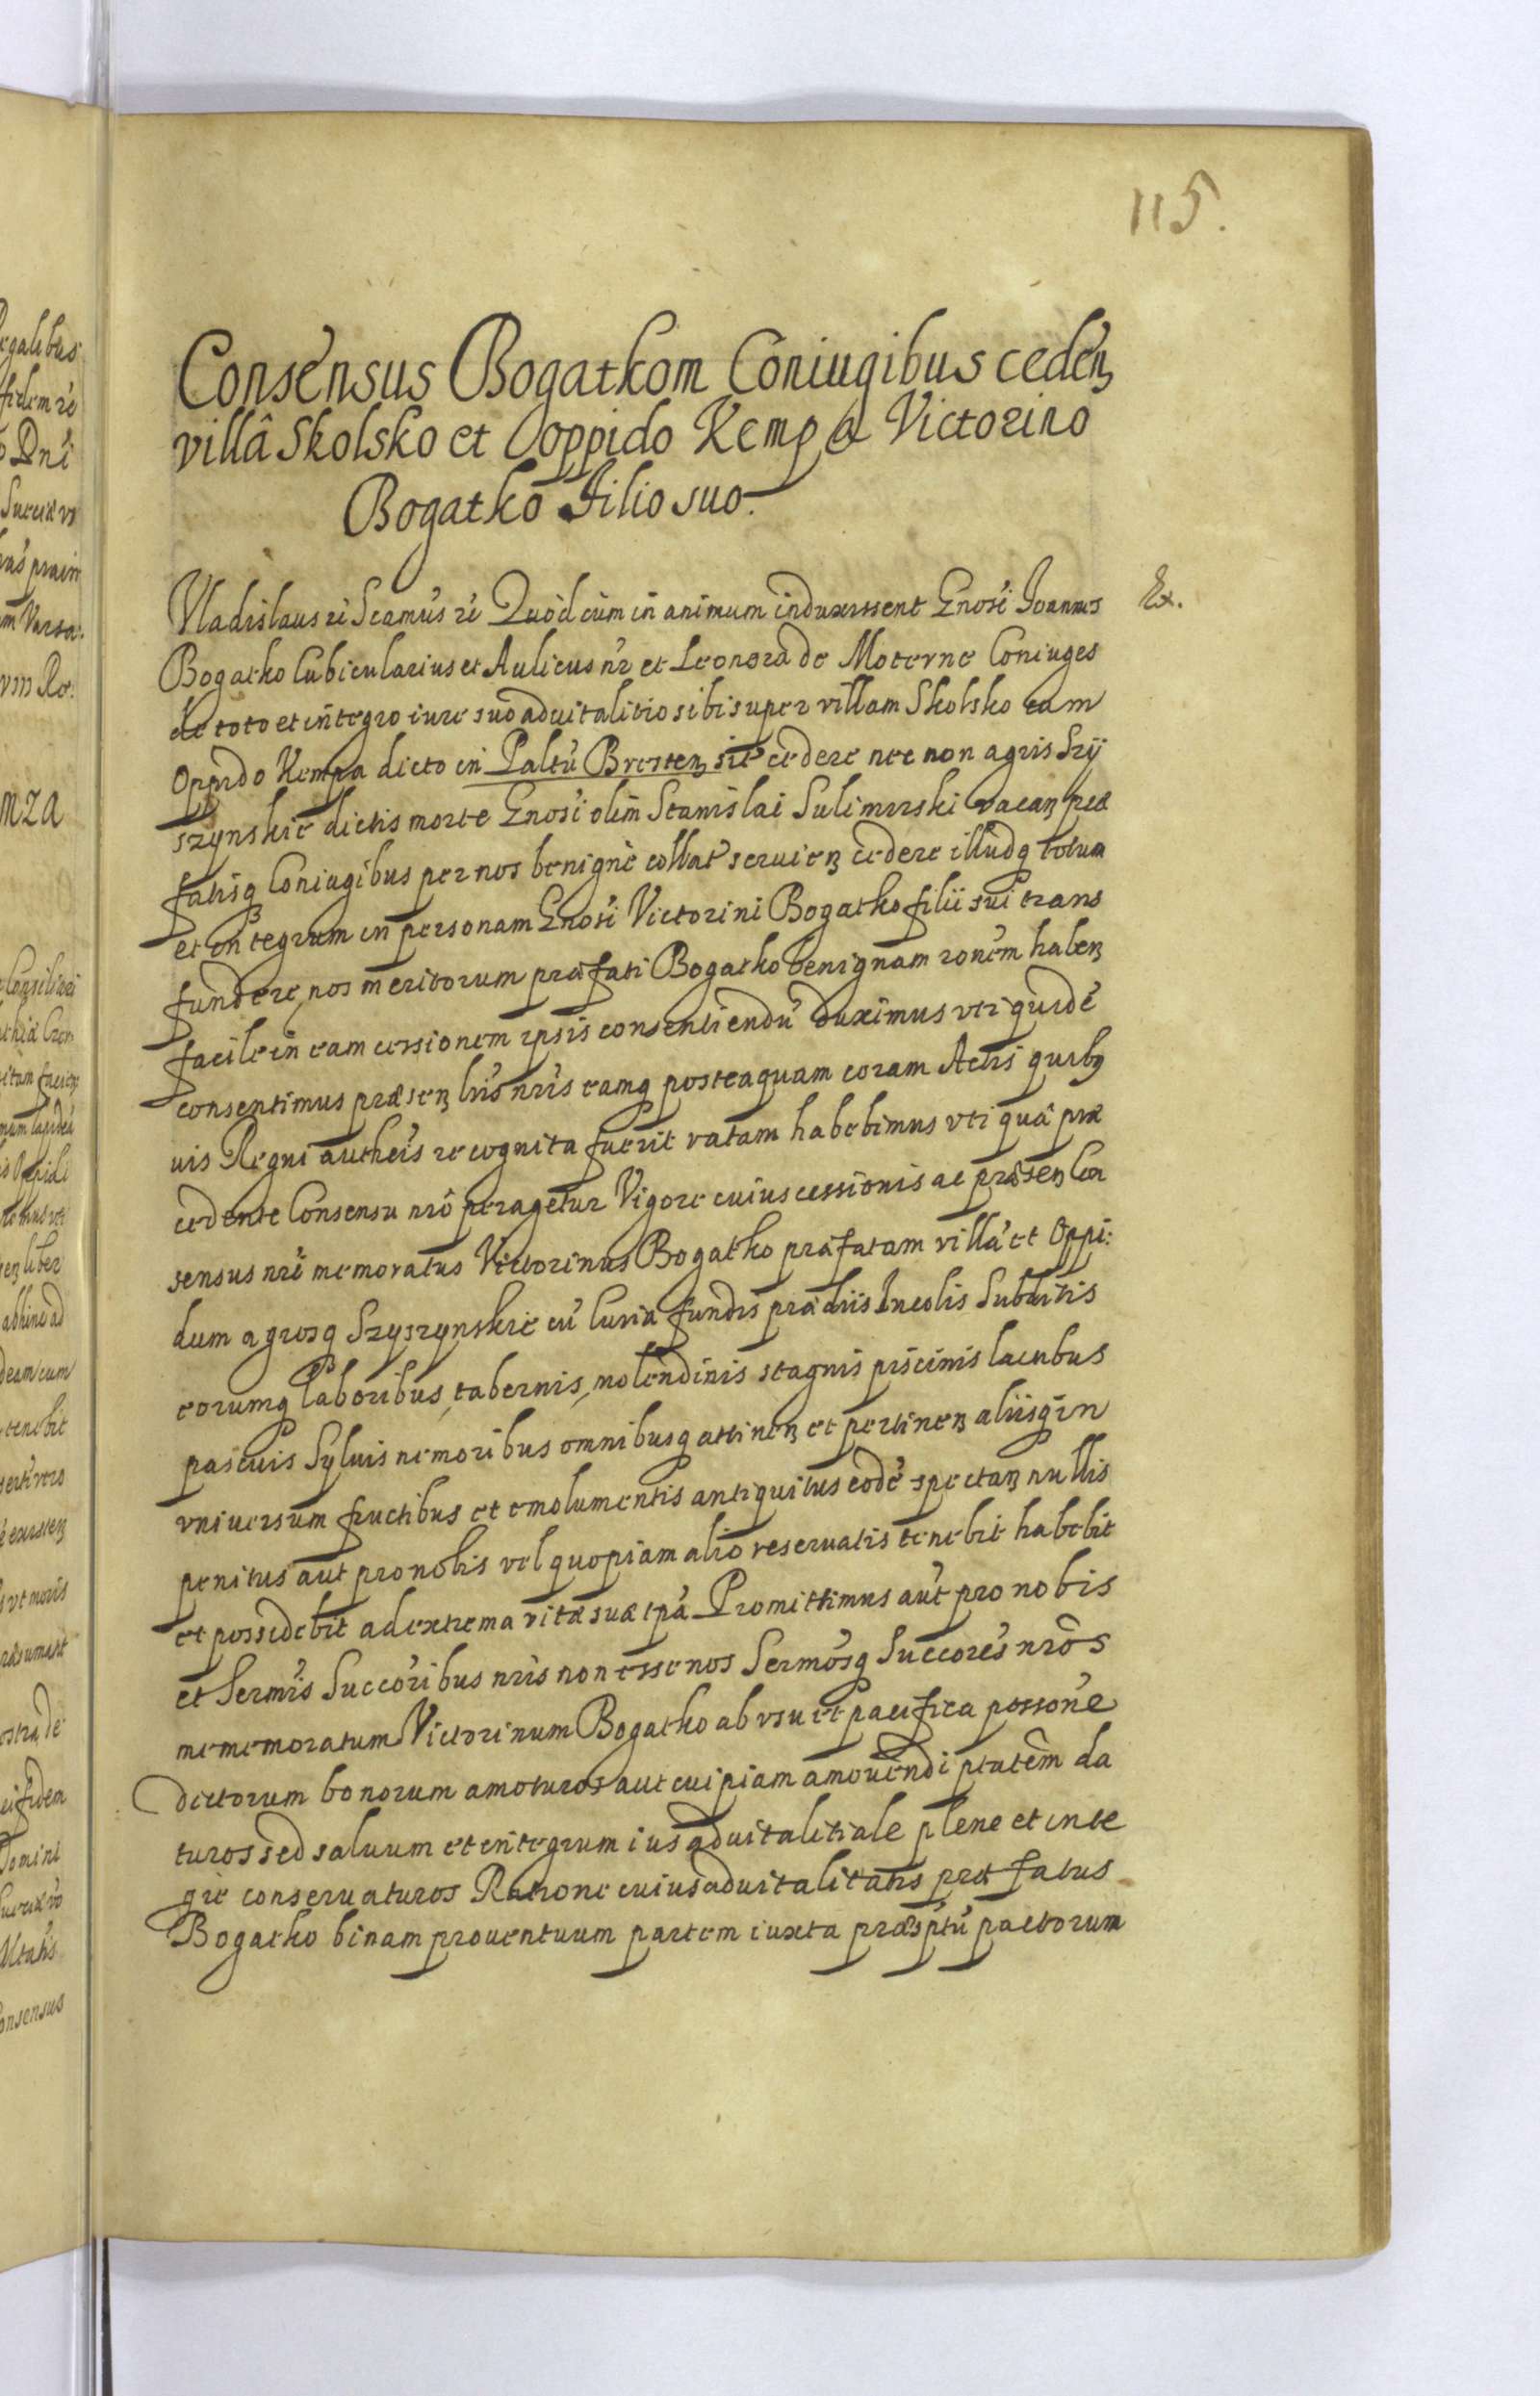 115.
Consensus Bogatkom Coniugibus ceden
villâ Skolsko et Oppido Kempa Victorino
Bogatko Filio suo.
Vladislaus rē Scamus rē Quod cùm in animum induxissent Gnosi Joannes
Ex.
Bogatko Cubicularius et Aulicus nr et Leonora de Moterne Coniuges
de toto et integro iure suo aduitalitio sibi super villam Skolsko cum
oppido Kempa dicto in Paltū Bresten sit cedere nec non agris Szÿ
szynskie dictis morte Gnosi olim Stanislai Sulimirski vacan præ
fatisq Coniugibus per nos benignè collat seruien cedere illudq totum
et integrum in personam Gnosi Victorini Bogatko filii sui trans
fundere, nos meritorum præfati Bogatko benignam ronem haben
facile in eam cessionem ipsis consentiendū duximus uti quidē
consentimus præsen lris nris eamq posteaquam coram Actis quibq
uis Regni autheis recognita fuerit ratam habebimus uti quâ præ
cedente Consensu nrō peragetur Vigore cuius cessionis ac præsen Con
sensus nri memoratus Victorinus Bogatko præfatam villā et Oppi:
dum agrosq Szyszynskie cū Curia fundis prædiis Incolis Subditis
eorumq laboribus, tabernis, molendinis stagnis piscinis lacubus
pascuis Syluis nemoribus omnibusq attinen et pertinen aliisq in
vniuersum fructibus et emolumentis antiquitus eodē spectan nullis
penitus aut pro nobis vel quopiam alio reseruatis tenebit habebit
et possidebit ad extrema vitæ suæ tpā Promittimus aūt pro nobis
et Sermis Succoribus nris non esse nos Sermosq Succores nrōs
mememoratum Victorinum Bogatko ab vsu et pacifica possone
dictorum bonorum amoturos aut cuipiam amouendi ptatem da
turos sed saluum et integrum ius aduitalitiale plene et inte
gre conseruaturos Ratione cuius aduitalitatis præfatus
Bogatko binam prouentuum partem iuxta præsptū pactorum